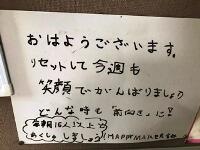 おはようございます。
リセットして今週も
笑顔でがんばりましょう
どんな時も「前向き」に!
毎朝16人以上と
あくしゅしましょう!